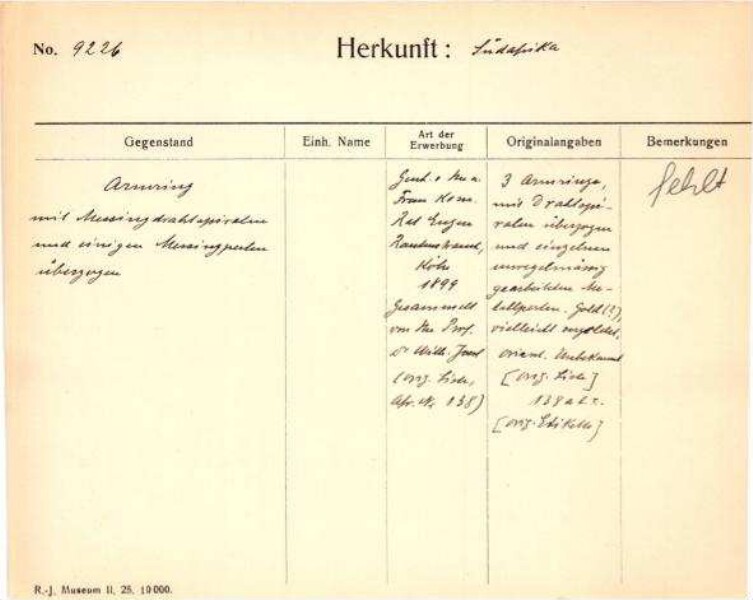 No. 9226
Herkunft: Südafrika
Gegenstand
Einh. Name
Art der Erwerbung
Originalangaben
Bemerkungen
Armring
mit Messingdrahtspiralen
und einigen Messingperlen
überzogen
Gesch. v. Hn u.
Frau Kom.
Rat Eugen
Rautenstrauch,
Köln
1899
Gesammelt
von Hn Prof.
Dr Wilh. Joest
(orig. Liste,
Afr. Nr. 138)
3 Armringe,
mit Drahtspi-
ralen überzogen
und einzelnen
unregelmässig
gearbeiteten Me-
tallperlen. Gold(?),
vielleicht vergoldet,
orient. Unbekannt
[orig. Liste]
138 a b c.
[orig. Etikette]
fehlt
R.-J. Museum II, 25. 10000.